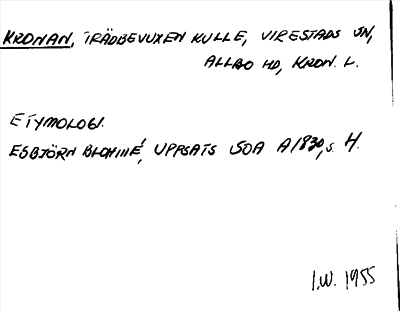 KRONAN, TRÄDBEVUXEN KULLE, VIRESTADS SN,
ALLBO HD, KRON. L.
ETYMOLOGI.
ESBJÖRN BLOHMÉ, UPPSATS SOA A1830, S. 4.
I.W. 1955